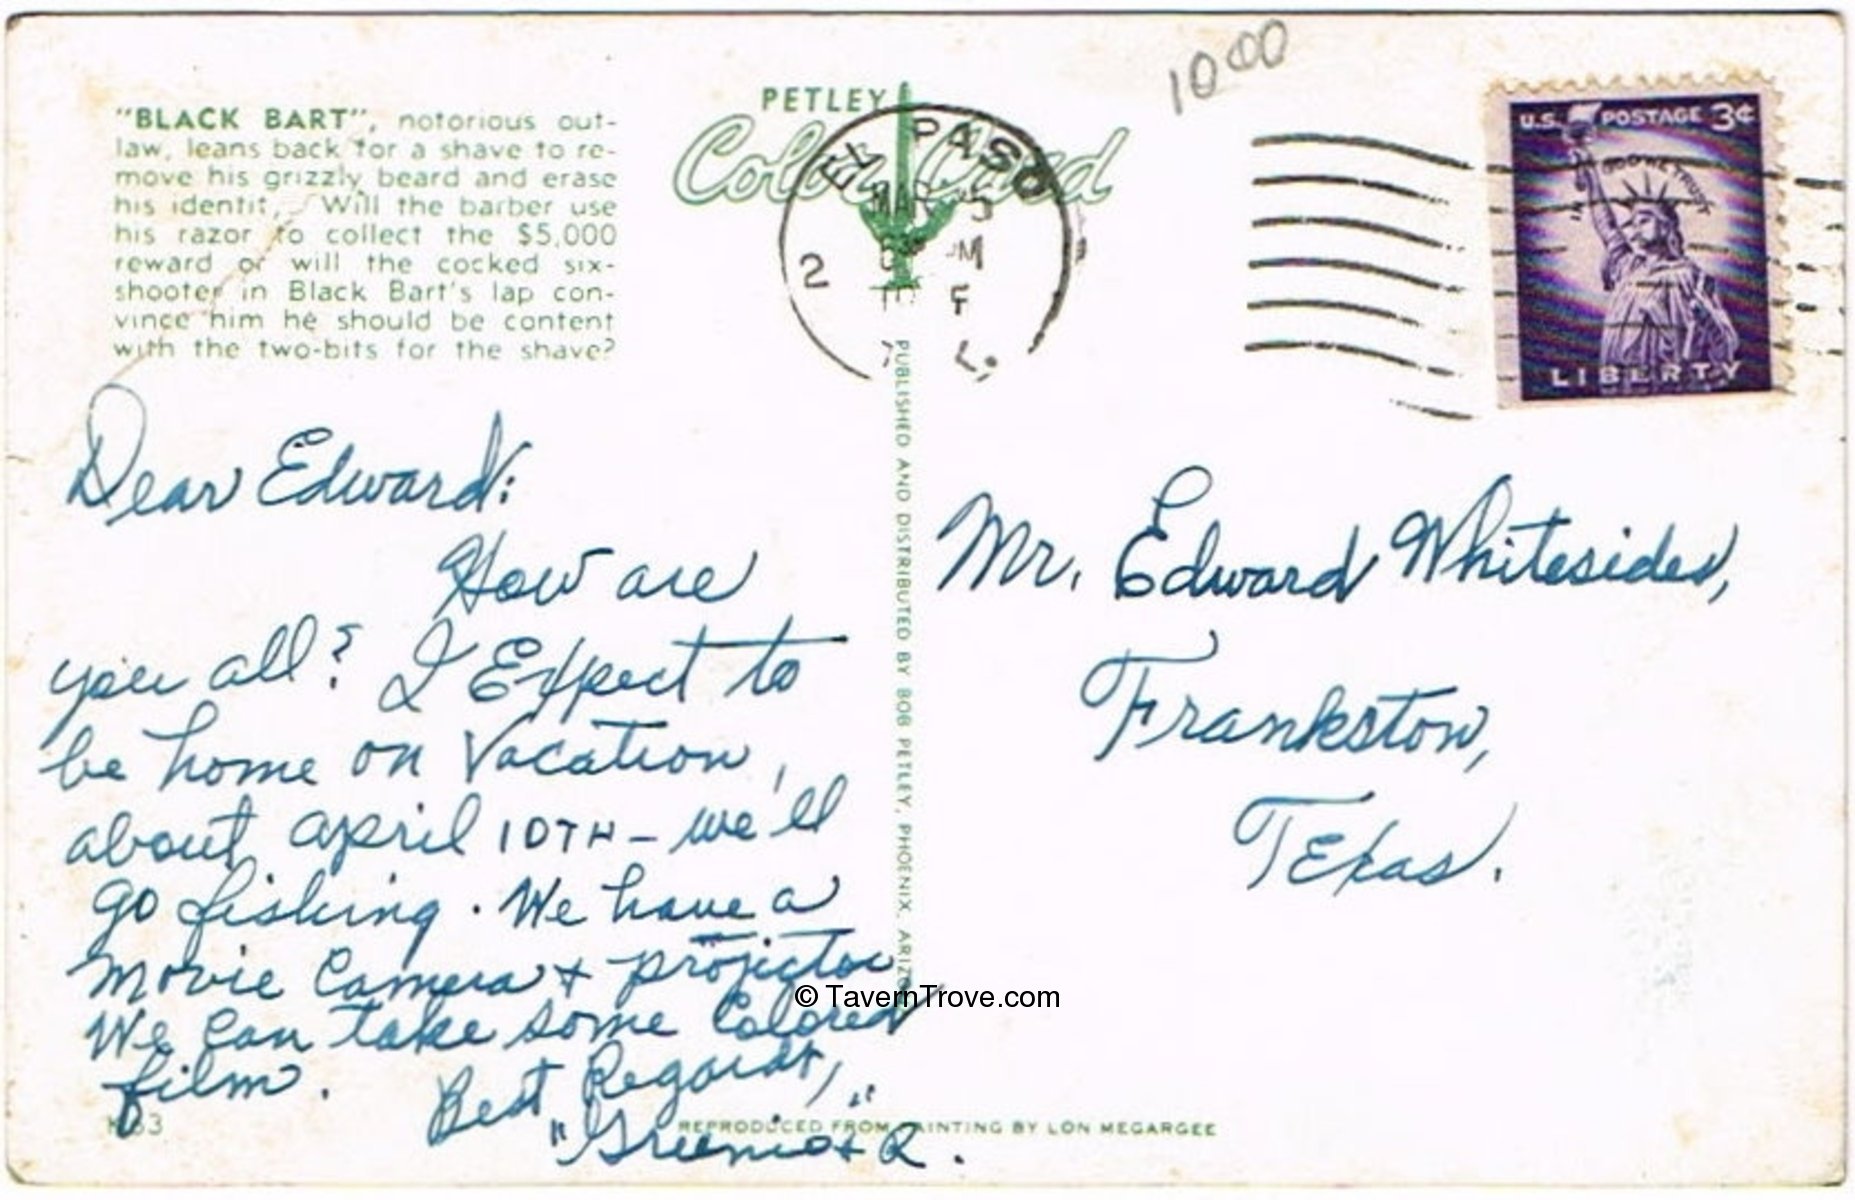 "BLACK BART", notorious out-
law, leans back for a shave to re-
move his grizzly beard and erase
his identit, Will the barber use
his razor to collect the $5,000
reward or will the cocked six-
shooter in Black Bart's lap con-
vince him he should be content
with the two-bits for the shave?
PETLEY
Color Card
EL PASO
MAR 5
2
10 00
U.S. POSTAGE 3¢
IN GOD WE TRUST
LIBERTY
Dear Edward:
How are
you all? I Expect to
be home on Vacation,
about April 10TH – we'll
go fishing. We have a
Movie Camera & projector
We can take some Colored
film.
Best Regards,
PUBLISHED AND DISTRIBUTED BY BOB PETLEY, PHOENIX, ARIZO
Mr. Edward Whitesides,
Frankston,
Texas.
© TavernTrove.com
REPRODUCED FROM PAINTING BY LON MEGARGEE